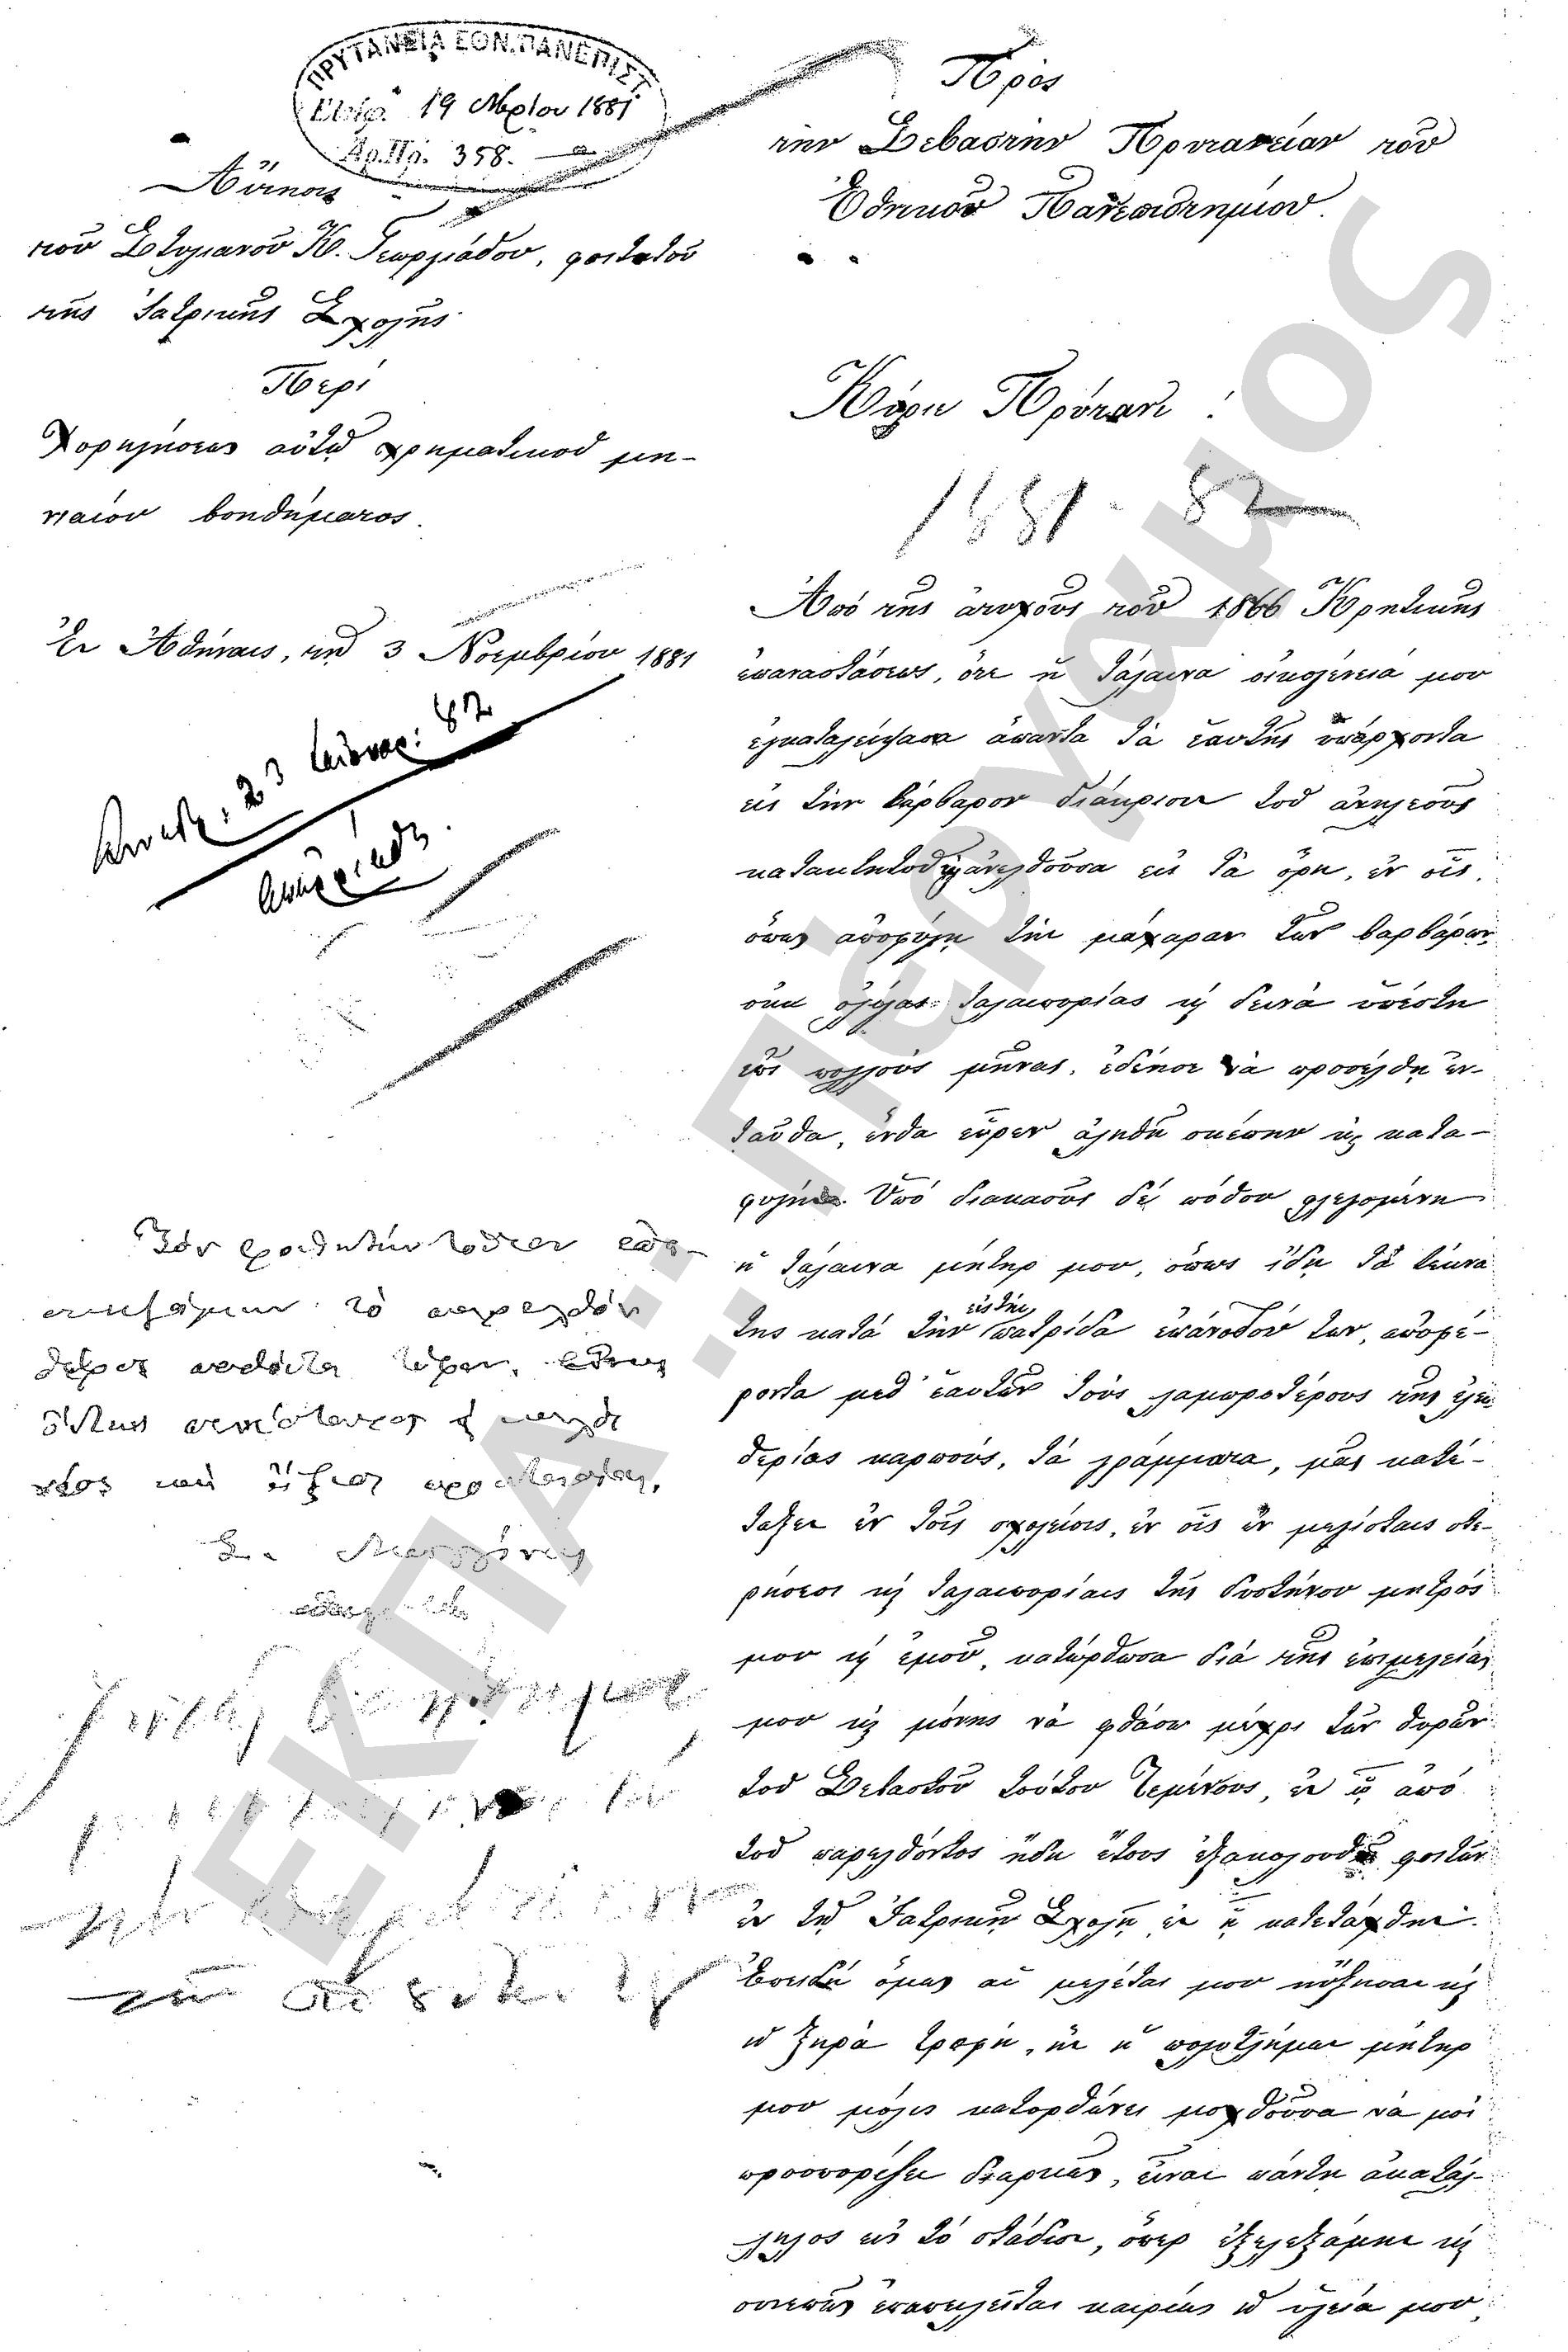 ΠΡΥΤΑΝΕΙΑ ΕΘΝ. ΠΑΝΕΠΙΣΤ.
19 Νβρίου 1881
Αρ. Πρ. 358.
Αἴτησις
τοῦ Στυλιανοῦ Κ. Γεωργιάδου, φοιτητοῦ
τῆς Ἰατρικῆς Σχολῆς
Περί
Χορηγήσεως αὐτῷ χρηματικοῦ μη-
νιαίου βοηθήματος.
Ἐν Ἀθήναις, τῇ 3 Νοεμβρίου 1881
23 82
Τὸν φοιτητὴν τοῦτον
τὸ παρελθὸν
καὶ ἄξιος
Πρὸς
τὴν Σεβαστὴν Πρυτανείαν τοῦ
Ἐθνικοῦ Πανεπιστημίου.
Κύριε Πρύτανι!
1881-82
Ἀπὸ τῆς ἐποχοῦς τοῦ 1866 Κρητικῆς
ἐπαναστάσεως, ὅτε ἡ τάλαινα οἰκογένειά μου
ἐγκαταλείψασα ἅπαντα τὰ ἑαυτῆς ὑπάρχοντα
εἰς τὴν βάρβαρον διάκρισιν τοῦ ἀνηλεοῦς
κατακτητοῦ ϗ ἀνελθοῦσα εἰς τὰ ὄρη, ἐν οἷς,
ὅπως ἀποφύγῃ τὴν μάχαιραν τῶν βαρβάρων,
οὐκ ὀλίγας ταλαιπωρίας ϗ δεινὰ ὑπέστη
ἐπὶ πολλοὺς μῆνας, ἐδέησε νὰ προσέλθῃ ἐν-
ταῦθα, ἔνθα εὗρεν ἀληθῆ σκέπην ϗ κατα-
φυγήν. Ὑπὸ διακαοῦς δὲ πόθου φλεγομένη
ἡ τάλαινα μήτηρ μου, ὅπως ἴδῃ τὰ τέκνα
της κατὰ τὴν εἰς τὴν πατρίδα ἐπάνοδόν των, ἀποφέ-
ροντα μεθ' ἑαυτῶν τοὺς λαμπροτέρους τῆς ἐλευ-
θερίας καρπούς, τὰ γράμματα, μᾶς κατέ-
ταξεν ἐν τοῖς σχολείοις, ἐν οἷς ἐν μεγίσταις στε-
ρήσεσι ϗ ταλαιπωρίαις τῆς δυστήνου μητρός
μου ϗ ἐμοῦ, κατώρθωσα διὰ τῆς ἐπιμελείας
μου ϗ μόνης νὰ φθάσω μέχρι τῶν θυρῶν
τοῦ Σεβαστοῦ τούτου Τεμένους, ἐν ᾧ ἀπὸ
τοῦ παρελθόντος ἤδη ἔτους ἐξακολουθῶ φοιτῶν
ἐν τῇ Ἰατρικῇ Σχολῇ ἐν ᾗ κατετάχθην.
Ἐπειδὴ ὅμως αἱ μελέται μου ηὔξησαν ϗ
ἡ ξηρὰ τροφή, ἣν ἡ πολυτλήμων μήτηρ
μου μόλις κατορθώνει μοχθοῦσα νὰ μοὶ
προσπορίζῃ διαρκῶς, εἶναι πάντῃ ἀκατάλ-
ληλος εἰς τὸ στάδιον, ὅπερ ἐξελεξάμην ϗ
συνεπῶς ἐπαπειλεῖται καιρίως ἡ ὑγεία μου,
ΕΚΠΑ: ΠέργαμοS